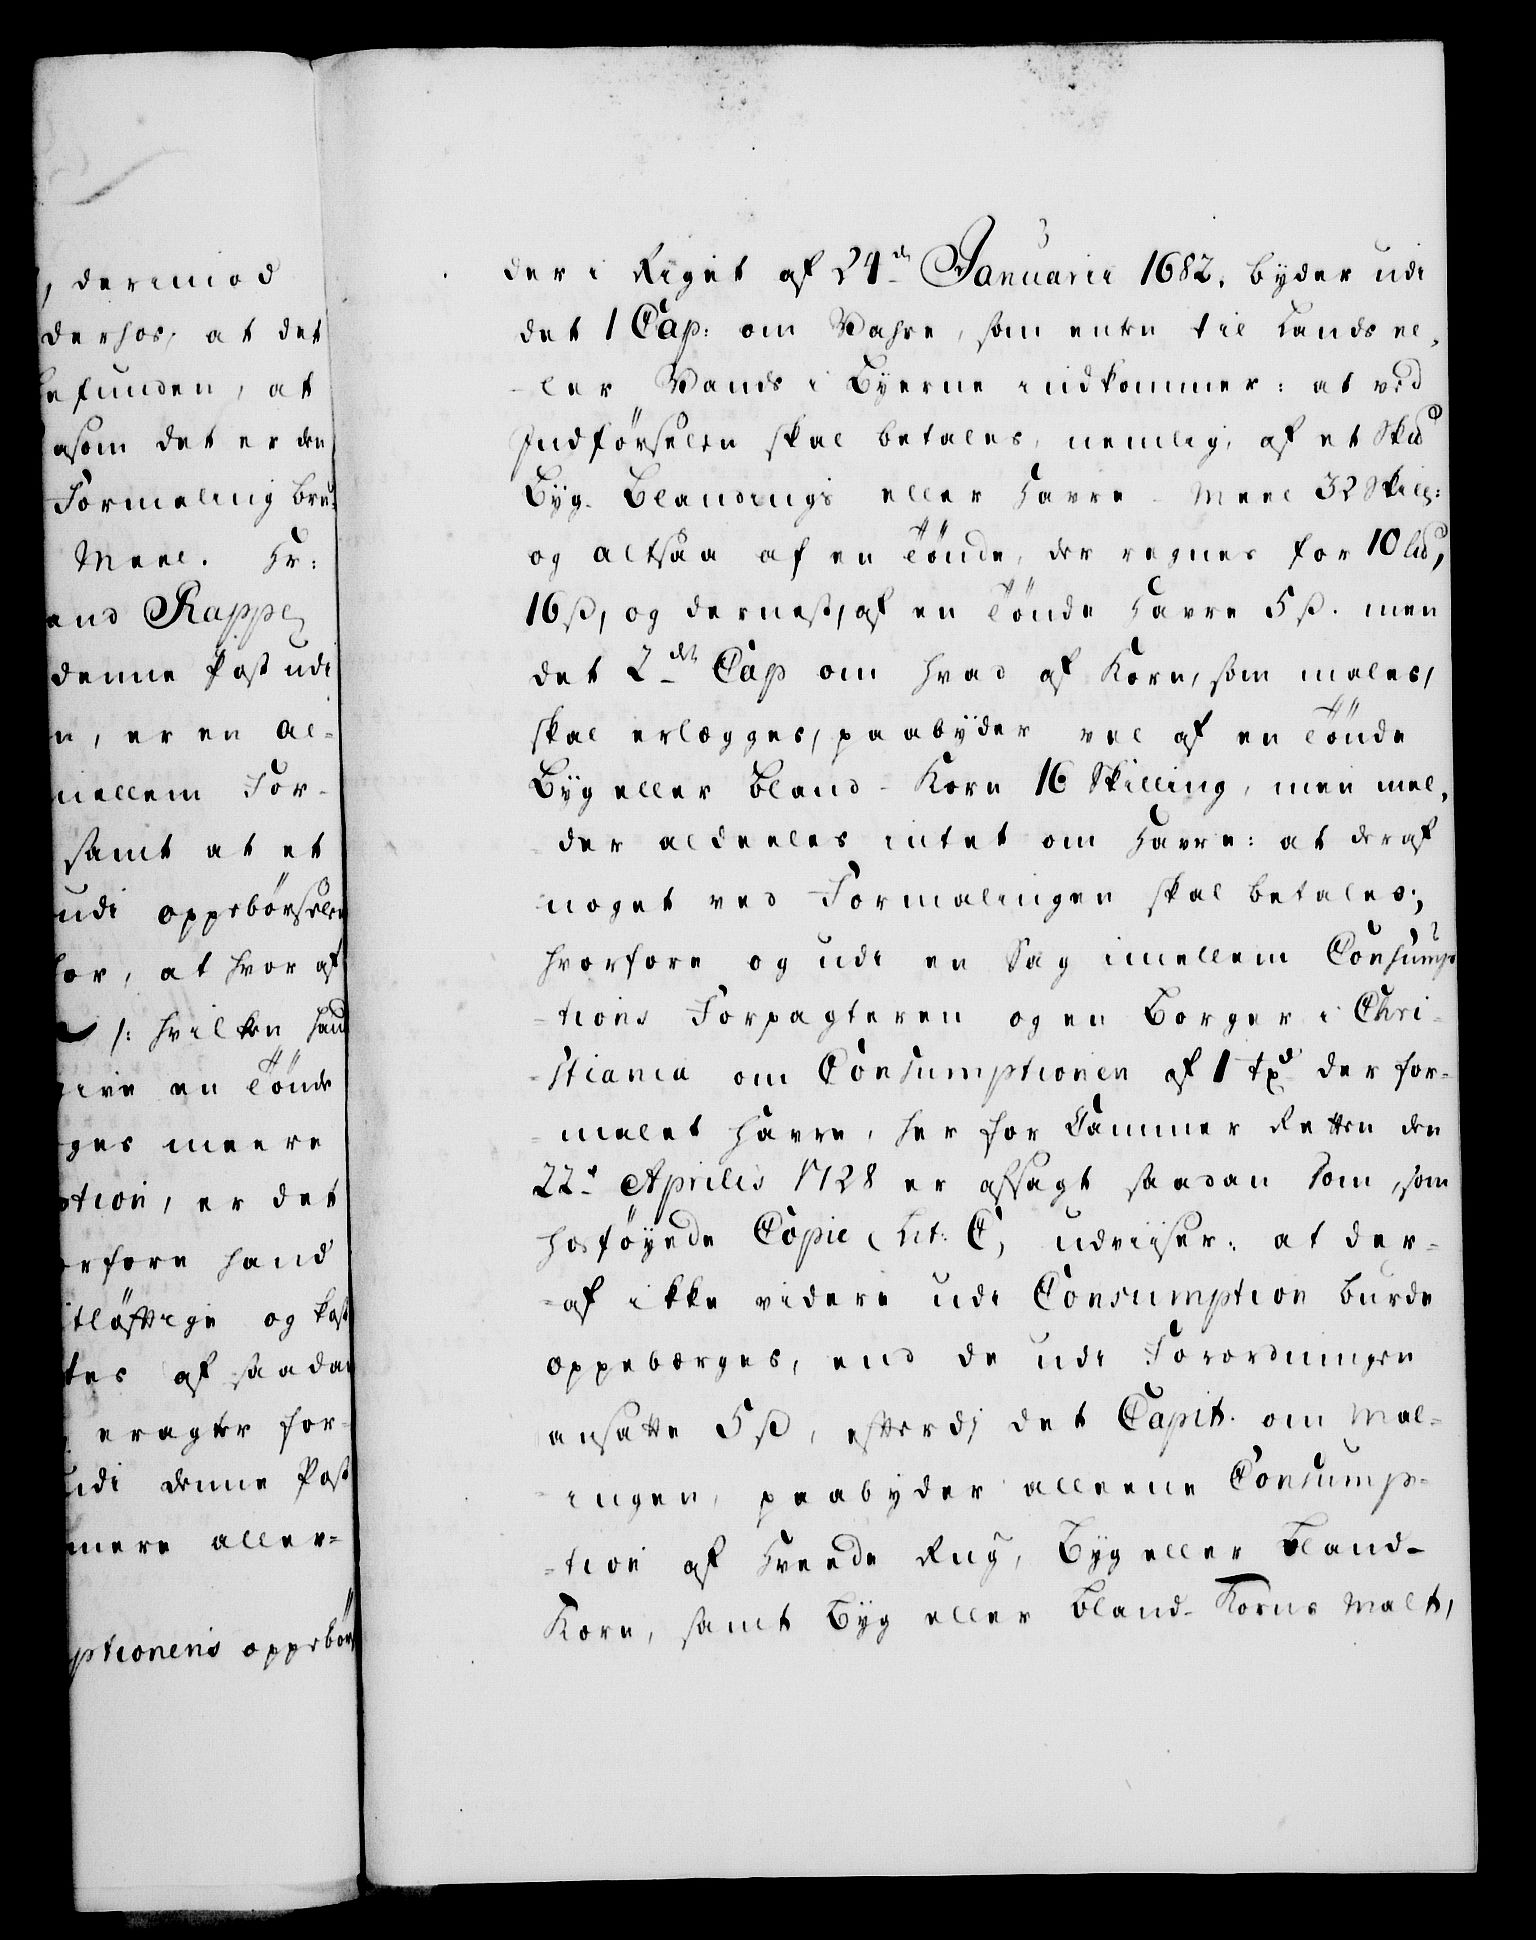 , derimod
derhos, at det
befunden, at
asom det er den
Formaling bru-
Meel. Hr:
end Rappe
denne Post udi
n, er en al-
mellem For-
samt at et
udi oppebörselen
for, at hvoraf
/: hvilken hand
give en Tönde
ges meere
ption, er det
orfore hand
itlöfftige og kost
tes af saadan
eragter for-
udi denne Post
mere aller-
ptionens oppebör
der i Riget af 24de Januarii 1682. byder udi
det 1 Cap: om Vahre, som enten til Lands el-
-ler Vands i Byerne indkommer: at ved
Indförselen skal betales, nemlig, af et Skd
Byg- Blandings eller Havre-Meel 32 Skill:
og altsaa af en Tönde, der regnes for 10 Ld,
16 ß, og dernest, af en Tönde Havre 5 ß. men
det 2det Cap om hvad af Korn, som males,
skal erlægges, paabyder vel af en Tönde
Byg eller Bland-Korn 16 Skilling, men mel-
-der aldeeles intet om Havre: at deraf
noget ved Formalingen skal betales;
hvorfore og udi en Sag imellem Consump
-tions Forpagteren og en Borger i Chri-
-stiania om Consumptionen af 1 td der for-
-malet Havre, her for Cammer Retten den
22de Aprilis 1728 er afsagt saadan Dom, som
hosföyede Copie Lit: C, udviiser: at der-
-af ikke videre udi Consumption burde
oppebærges, end de udi Forordningen
ansatte 5 ß, efterdi det Capit. om Mal-
-ingen, paabyder alleene Consump-
-tion af Hvede Rug, Byg eller Bland-
Korn, samt Byg eller Bland-Korns Malt,